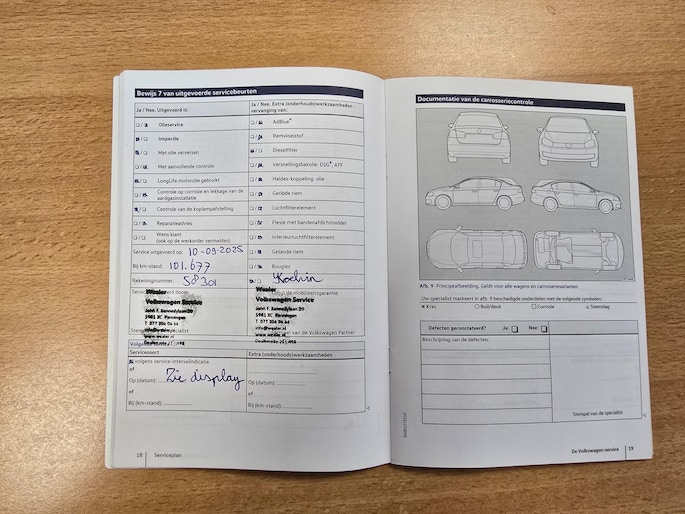 Bewijs 7 van uitgevoerde servicebeurten
Ja / Nee, Uitgevoerd is:
Olieservice
Inspectie
Met olie verversen
Met aanvullende controle
LongLife motorolie gebruikt
Controle op corrosie en lekkage van de
aardgasinstallatie
Controle van de koplampafstelling
Reparatieadvies
Wens klant
(ook op de werkorder vermelden)
Service uitgevoerd op: 10-09-2025
Bij km-stand: 101.677
Rekeningnummer: 58301
Ja / Nee, Extra (onderhouds)werkzaamheden -
vervanging van:
AdBlue
Remvloeistof
Dieselfilter
Versnellingsbakolie: DSG, ATF
Haldex-koppeling: olie
Geribde riem
Luchtfilterelement
Flesje met bandenafdichtmiddel
Interieurluchtfilterelement
Getande riem
Bougies
Volkswagen Service
John F. Kennedylaan 20
5981 XC Panningen
T 077 306 06 66
Volkswagen Service
John F. Kennedylaan 20
5981 XC Panningen
T 077 306 06 66
Servicesoort
Extra (onderhouds)werkzaamheden
volgens service-intervalindicatie
of
Op (datum): Zie display
of
Bij (km-stand):
Op (datum):
of
Bij (km-stand):
18 Serviceplan
Documentatie van de carrosseriecontrole
Afb. 9 Principeafbeelding. Geldt voor alle wagens en carrosserievarianten
Uw specialist markeert in afb. 9 beschadigde onderdelen met de volgende symbolen:
× Kras ○ Buil/deuk □ Corrosie △ Steenslag
Defecten geconstateerd? Ja: Nee:
Beschrijving van de defecten:
Stempel van de specialist
De Volkswagen-service 19